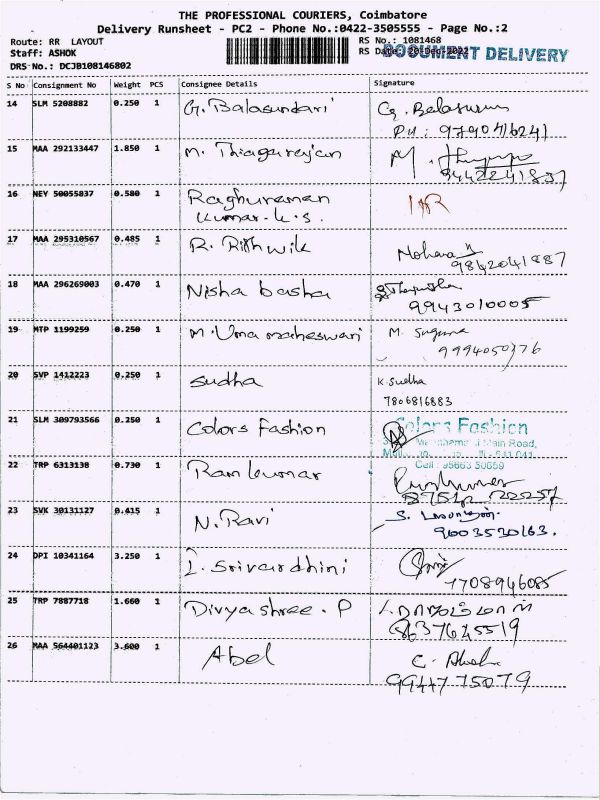 THE PROFESSIONAL COURIERS, Coimbatore
Delivery Runsheet - PC2 - Phone No.:0422-3505555 - Page No.:2
Route: RR LAYOUT
RS No.: 1081468
Staff: ASHOK
RS Date: 20-Dec-2022
DOCUMENT DELIVERY
DRS No.: DCJB108146802
S No Consignment No Weight PCS Consignee Details Signature
14 SLM 5208882 0.250 1 G. Balasundari
PH: 9790416241
15 MAA 292133447 1.850 1 M. Thiagarajan
9442241837
16 NEY 50055837 0.580 1 Raghuraman
Kumar. K. S.
17 MAA 295310567 0.485 1 R. Rithwik
9842041887
18 MAA 296269003 0.470 1 Nisha basha
9943010005
19 MTP 1199259 0.250 1 M. Uma maheswari M. Suguna
9994050376
20 SVP 1412223 0.250 1 Sudha K. Sudha
7806816883
21 SLM 309793566 0.250 1 Colors Fashion Colors Fashion
Main Road,
641 041
Cell: 95663 50659
22 TRP 6313138 0.730 1 Ramkumar
23 SVK 30131127 0.415 1 N. Ravi
9003530163.
24 DPI 10341164 3.250 1 L. Srivardhini
7708946085
25 TRP 7887718 1.660 1 Divyashree. P
8637645519
26 MAA 564401123 3.600 1 Abel
9944775079